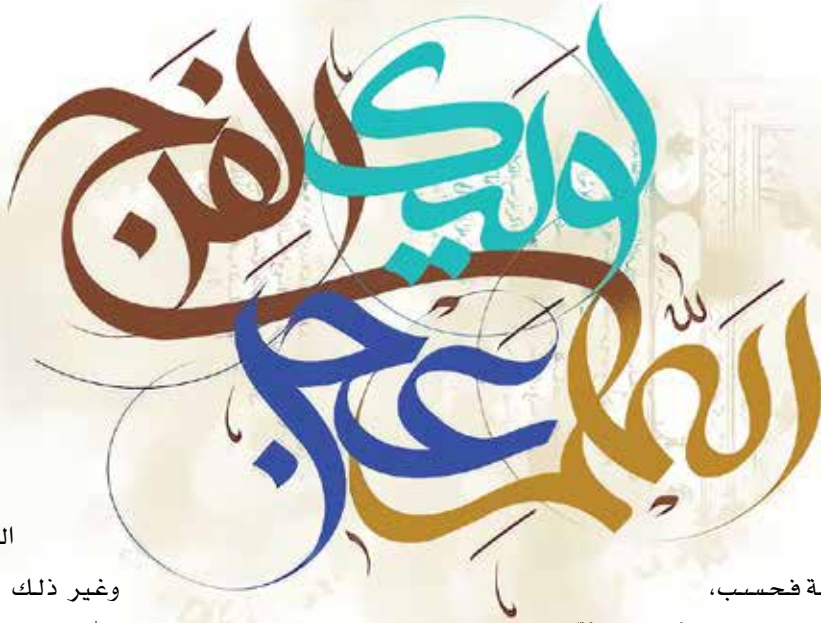 اللّهم عجل
لوليك الفرج
ـة فحسب،
ال
وغير ذلك